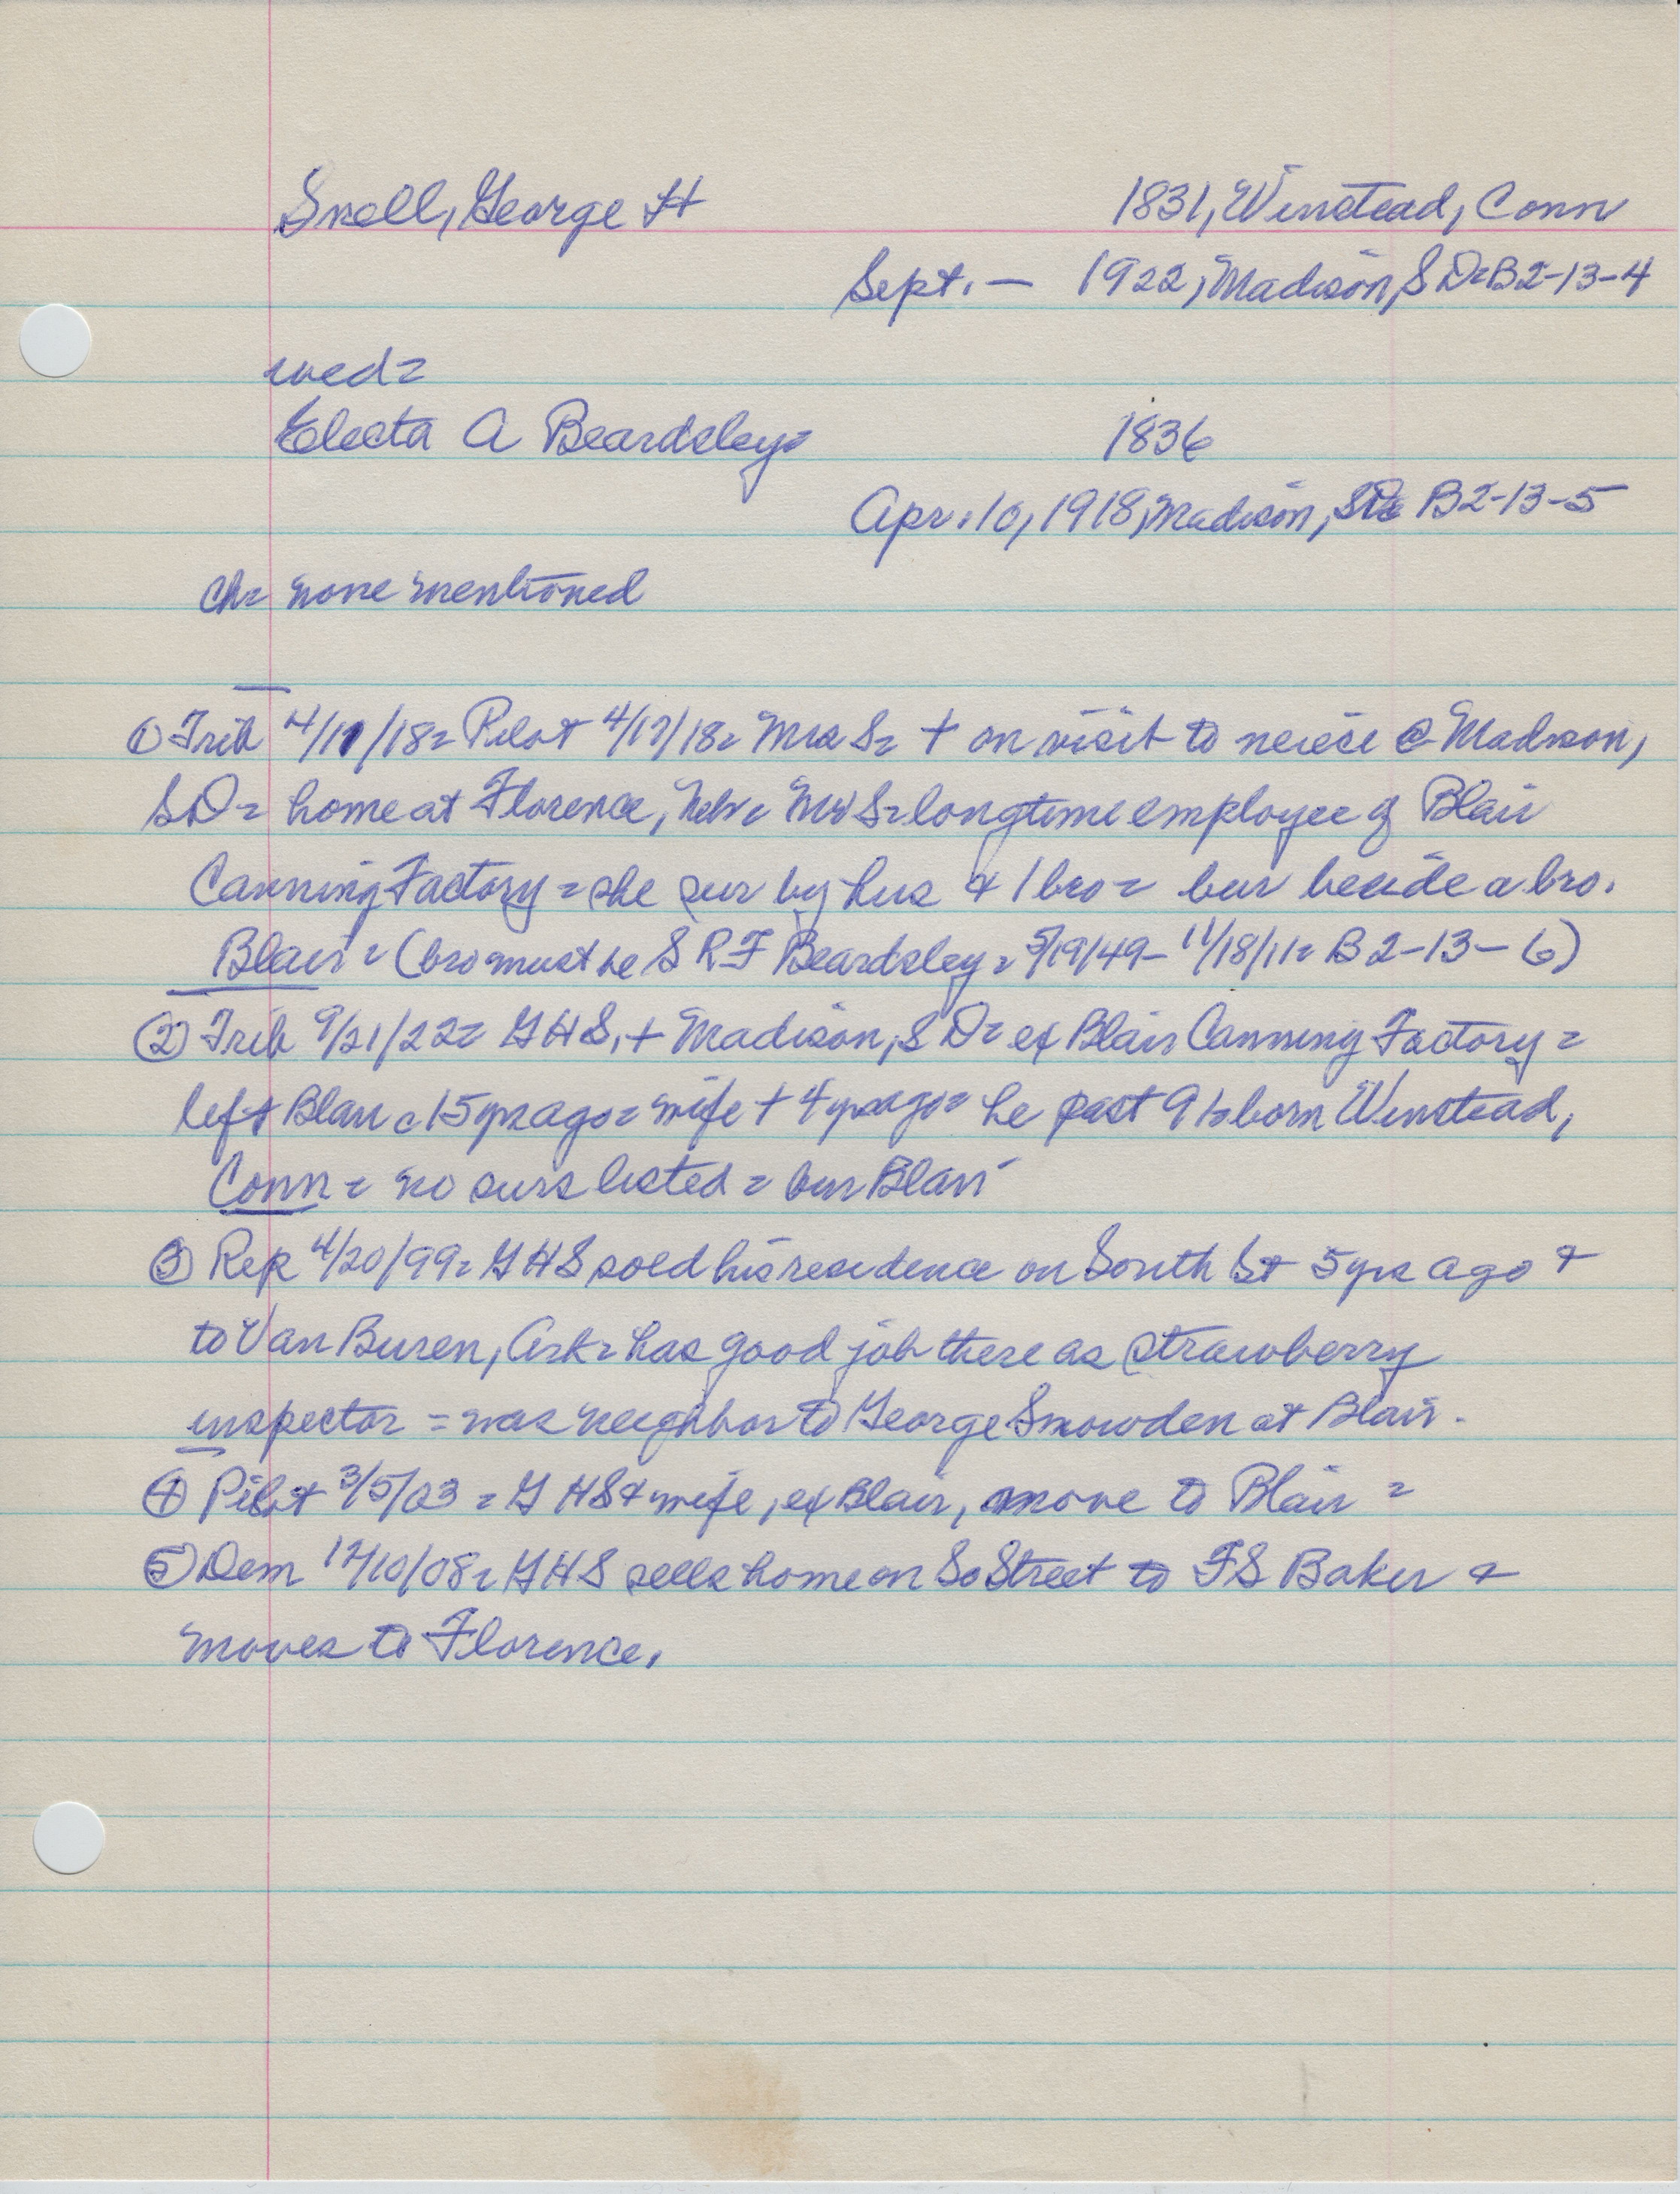 Snell, George H 1831, Winstead, Conn
Sept. — 1922, Madison, SD= B2-13-4
wed=
Electa A Beardsley= 1836
Apr. 10, 1918, Madison, SD= B2-13-5
ch= none mentioned
① Trib 4/11/18= Pilot 4/17/18= Mrs S= + on visit to neiese @ Madison,
SD= home at Florence, Neb= Mr S= longtime employee of Blair
Canning Factory = she sur by hus & 1 bro = bur beside a bro.
Blair = (bro must be S R F Beardsley = 5/19/49- 11/18/11= B2-13-6)
② Trib 9/21/22= G H S, + Madison, S D= ex Blair Canning Factory =
left Blair c 15 yrs ago = wife + 4 yrs ago= he past 91= born Winstead,
Conn = no surs listed = bur Blair
③ Rep 4/20/99= G H S sold his residence on South St 5 yrs ago &
to Van Buren, Ark= has good job there as strawberry
inspector = was neighbor to George Snowden at Blair.
④ Pilot 3/5/03 = G H S & wife, ex Blair, move to Blair =
⑤ Dem 12/10/08= G H S sells home on So Street to F S Baker &
moves to Florence.